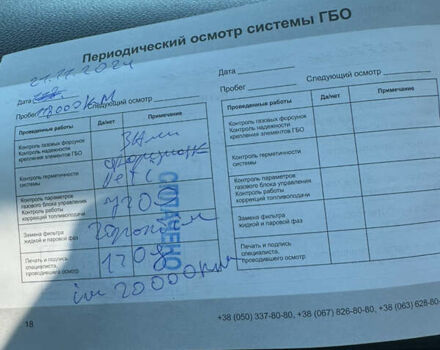 Периодический осмотр системы ГБО
21.11.2024
Дата
Пробег Следующий осмотр
Проведенные работы Да/нет Примечание
Контроль газовых форсунок
Контроль надежности
крепления элементов ГБО
Контроль герметичности
системы
Контроль параметров
газового блока управления
Контроль работы
коррекций топливоподачи
Замена фильтра
жидкой и паровой фаз
Печать и подпись
специалиста,
проводившего осмотр
СПЛАЧЕНО
20000км
18
Дата
Пробег Следующий осмотр
Проведенные работы Да/нет Примечание
Контроль газовых форсунок
Контроль надежности
крепления элементов ГБО
Контроль герметичности
системы
Контроль параметров
газового блока управления
Контроль работы
коррекций топливоподачи
Замена фильтра
жидкой и паровой фаз
Печать и подпись
специалиста,
проводившего осмотр
+38 (050) 337-80-80, +38 (067) 826-80-80, +38 (063) 628-80-